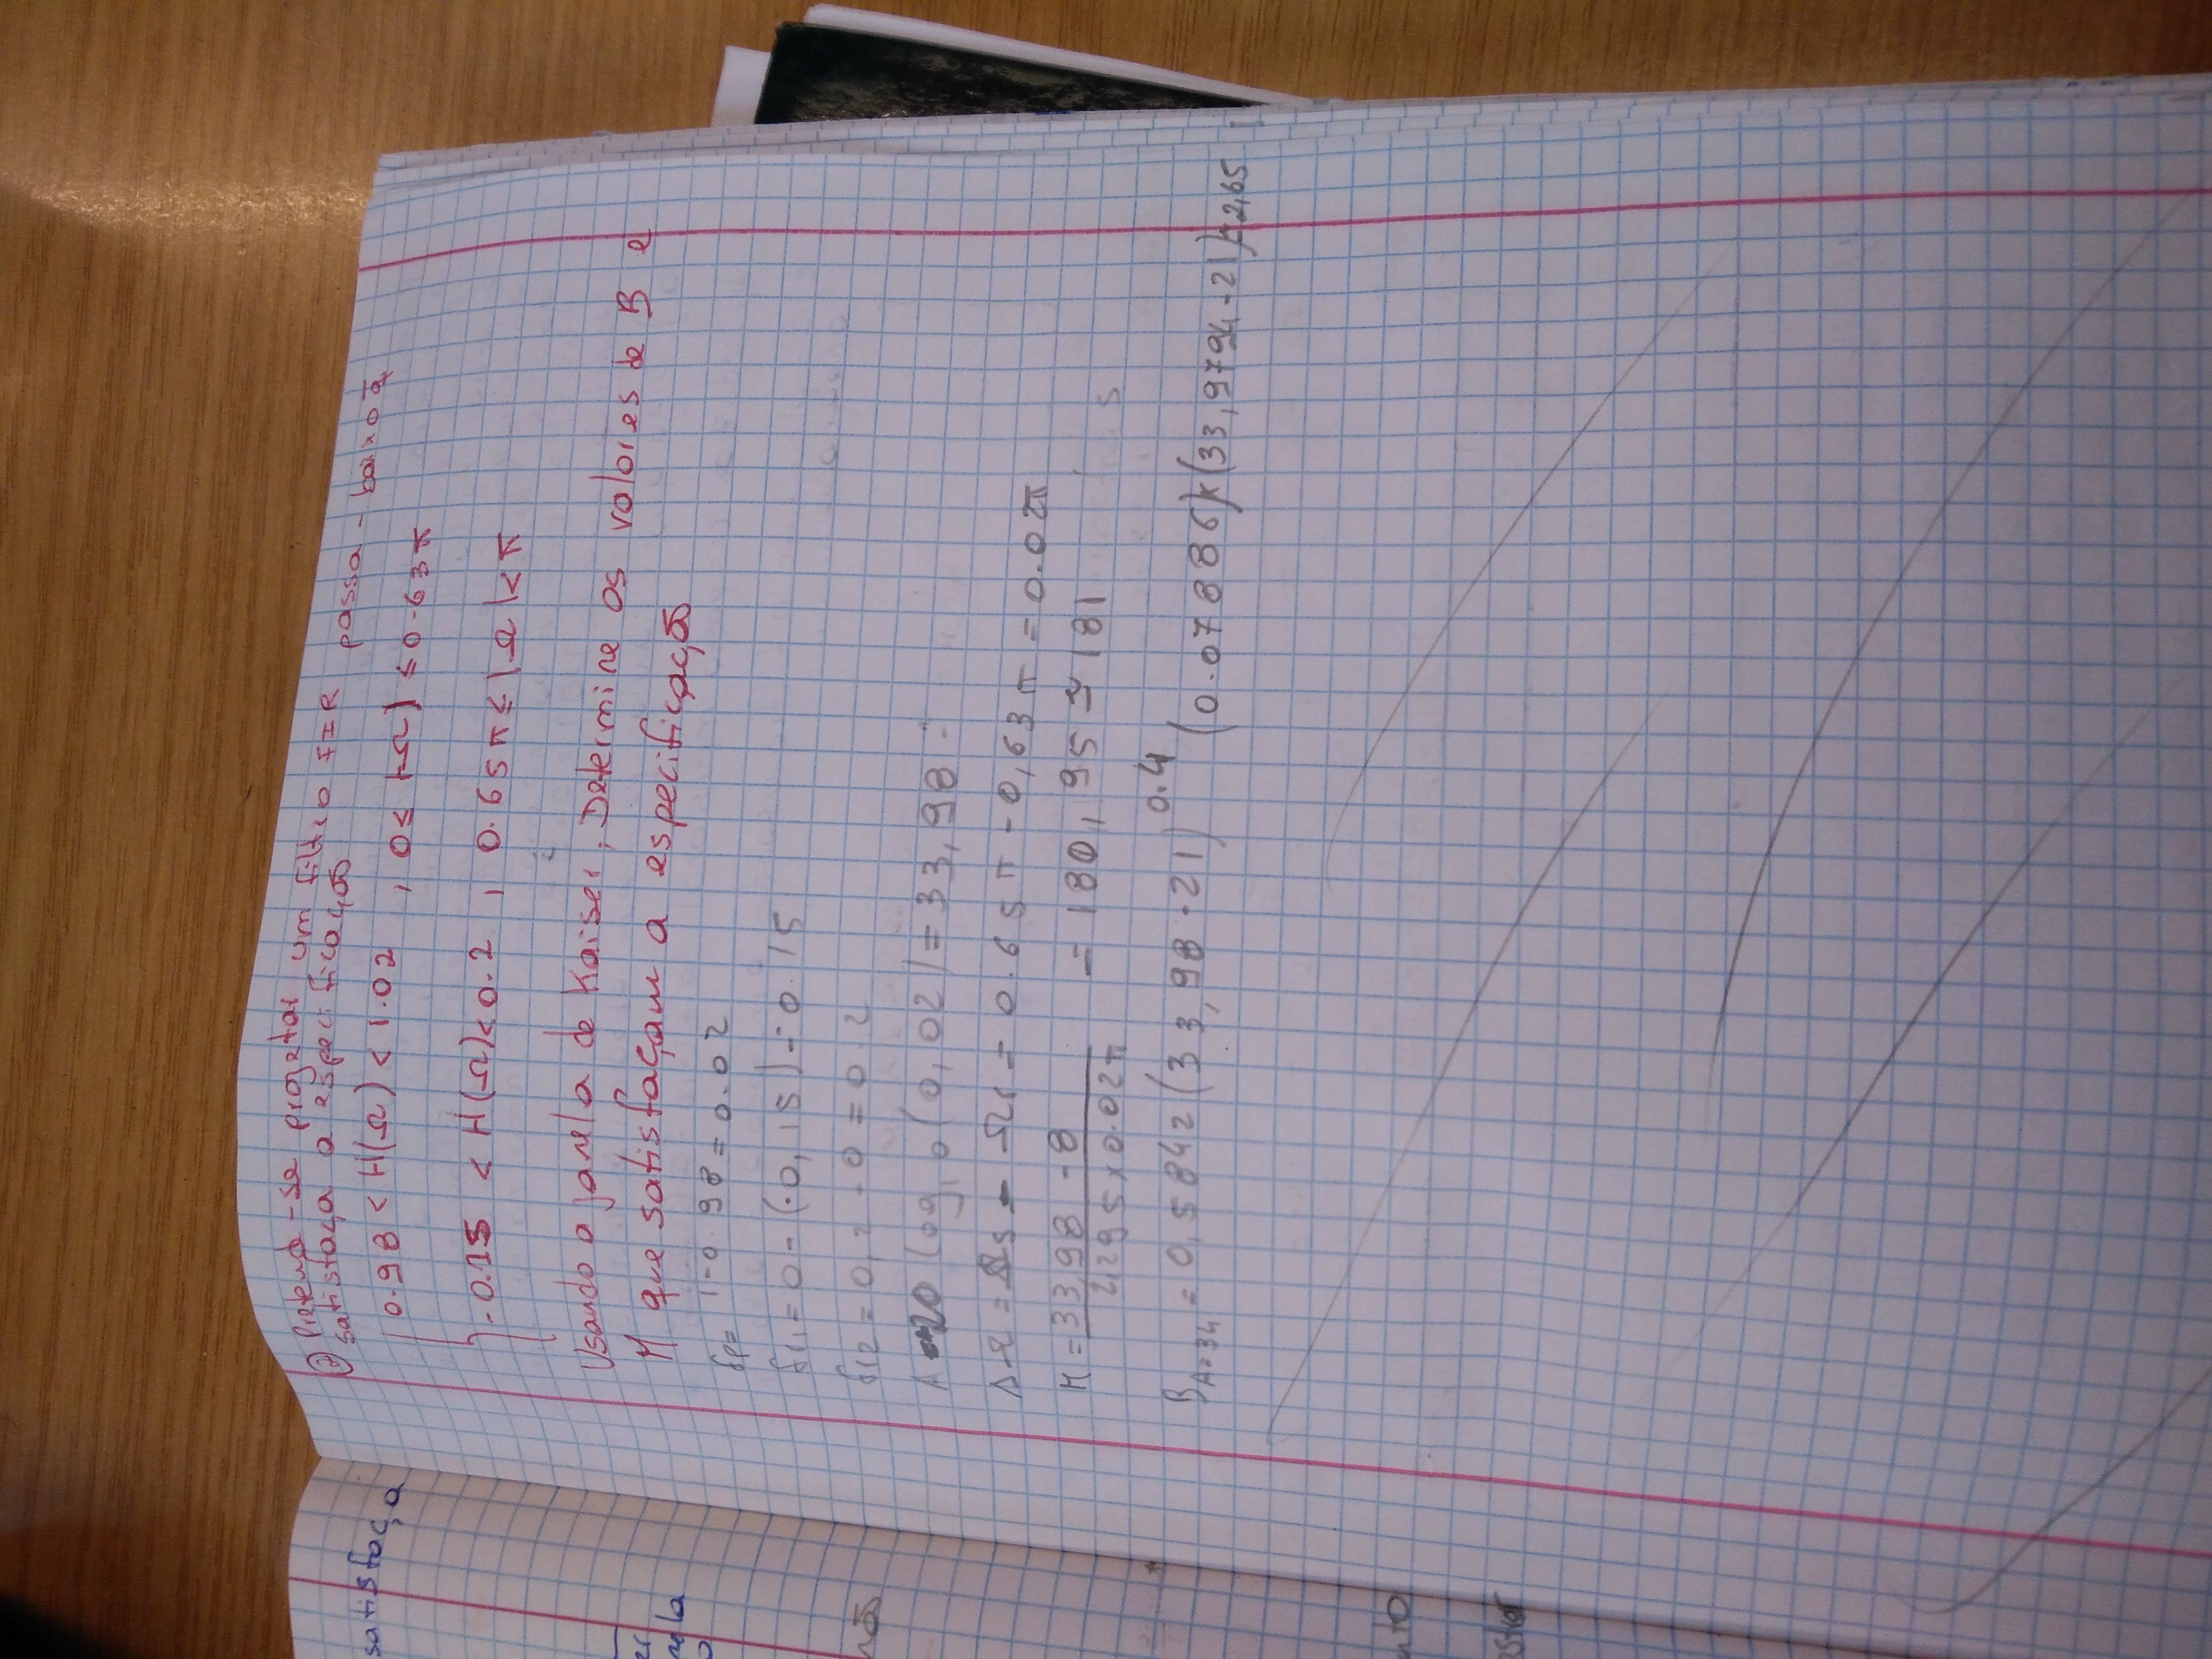 ② Pretende-se projetar um filtro FIR passa-baixo q
satisfaça a especificação
0.98 < H(Ω) < 1.02 , 0 ≤ |Ω| ≤ 0.63π
-0.15 < H(Ω) < 0.2 , 0.65π ≤ |Ω| < π
Usando a janela de Kaiser, Determine os valores de B e
M que satisfaçam a especificação
δp = 1-0.98 = 0.02
δr1 = 0-(-0,15) = 0.15
δr2 = 0,2 - 0 = 0.2
A = -20 log10 (0,02) = 33,98
ΔΩ = Ωs - Ωr = 0.65π - 0,63π = 0.02π
M = 33,98 - 8 / 2,295 x 0.02π = 180,195 ≃ 181
B A=34 = 0,5842 (33,98-21)^0.4 (0.07886) x (33,9794-21) = 2,65
satisfaça